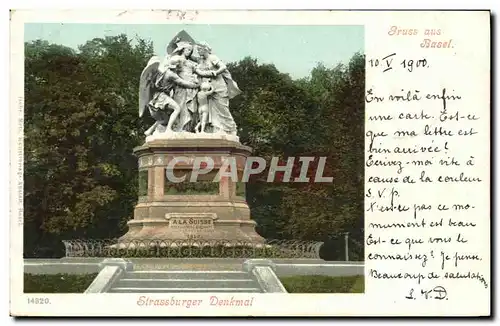 Gruss aus
Basel.
10. V 1900.
En voilà enfin
une carte. Est-ce
que ma lettre est
bien arrivée?
Ecrivez-moi vite à
cause de la couleur
S. V. P.
N'est-ce pas ce mo-
nument est beau
Est-ce que vous le
connaissez? Je pense.
Beaucoup de salutations
CPHARAMA
A LA SUISSE
14920.
Strassburger Denkmal